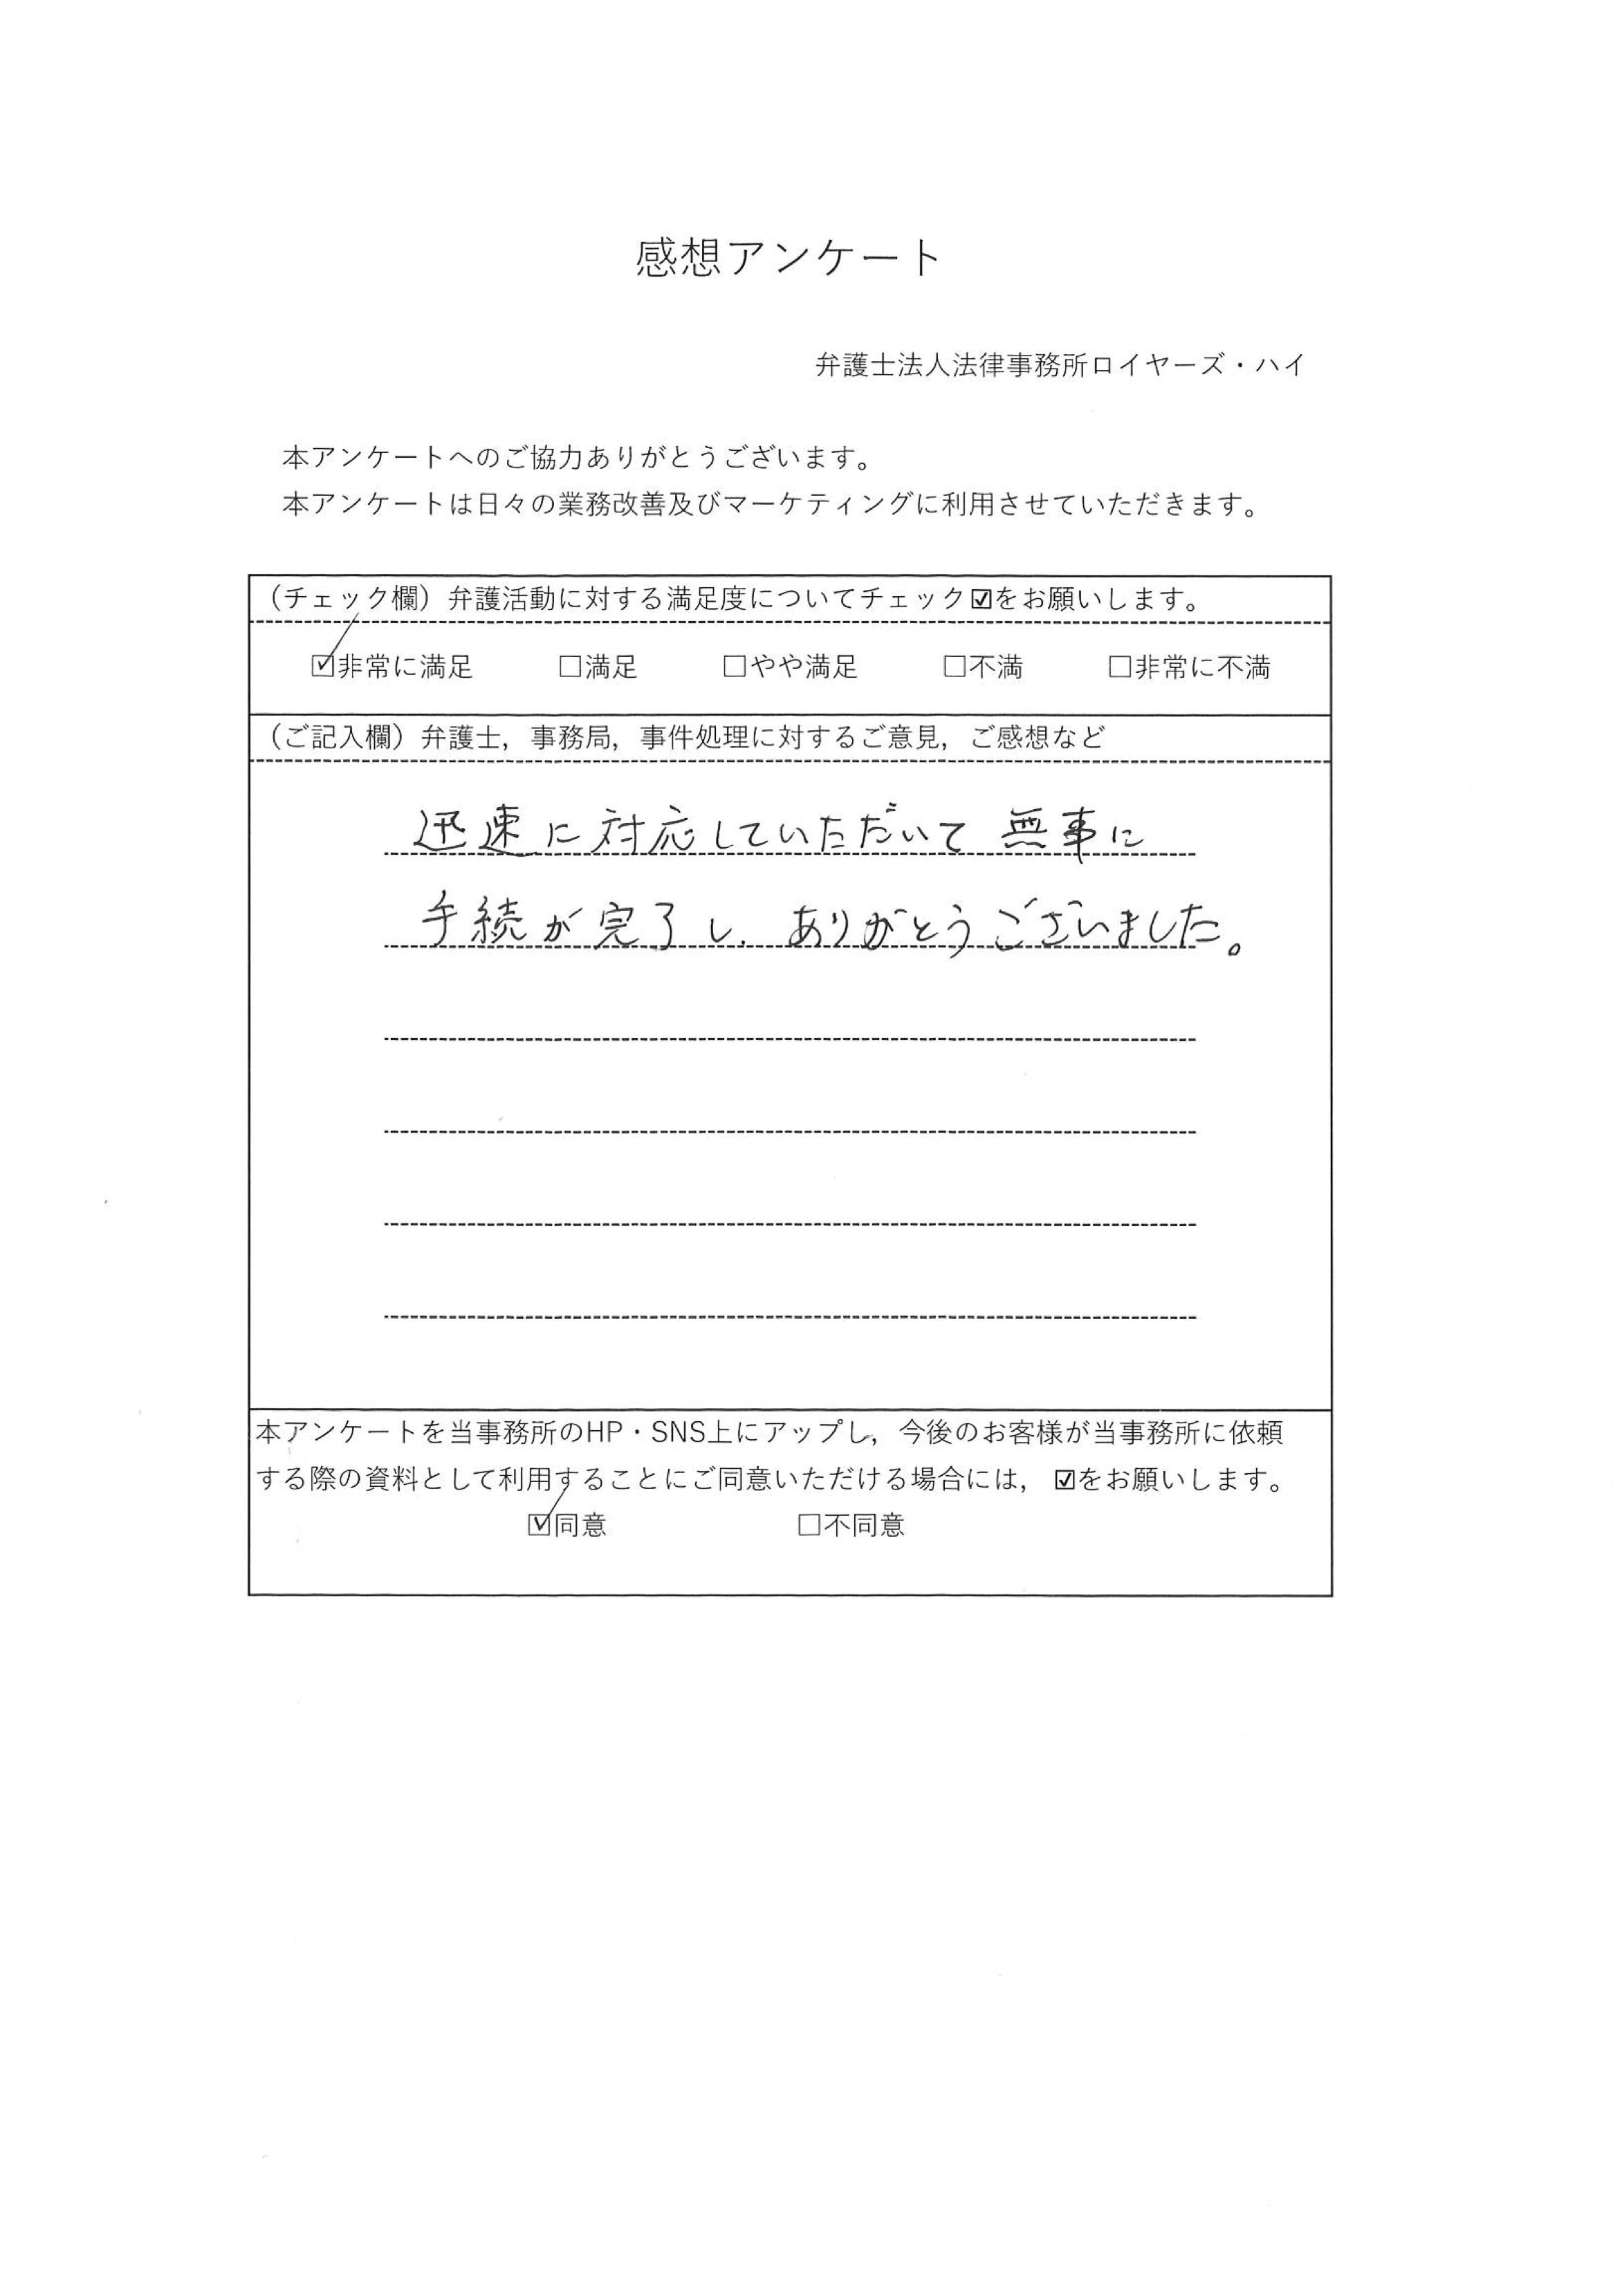 感想アンケート
弁護士法人法律事務所ロイヤーズ・ハイ
本アンケートへのご協力ありがとうございます。
本アンケートは日々の業務改善及びマーケティングに利用させていただきます。
（チェック欄）弁護活動に対する満足度についてチェック☑をお願いします。
☑非常に満足 □満足 □やや満足 □不満 □非常に不満
（ご記入欄）弁護士，事務局，事件処理に対するご意見，ご感想など
迅速に対応していただいて 無事に
手続が完了し、ありがとうございました。
本アンケートを当事務所のHP・SNS上にアップし，今後のお客様が当事務所に依頼
する際の資料として利用することにご同意いただける場合には，☑をお願いします。
☑同意 □不同意